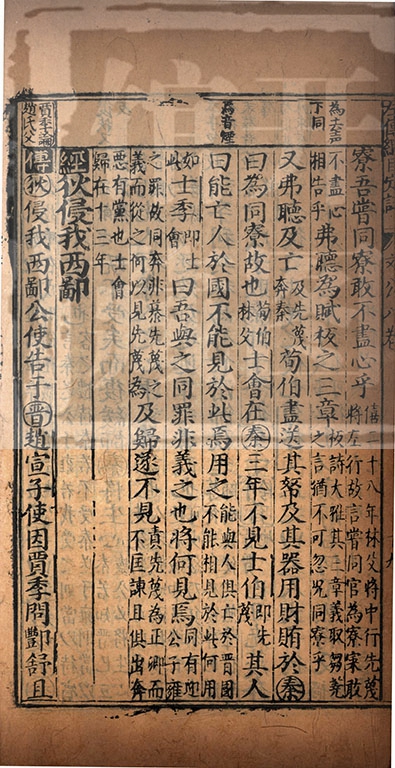 寮吾嘗同寮敢不盡心乎僖二十八年林父將中行先蔑將左行故言嘗同官為寮寀敢
不盡心弗聽為賦板之三章板詩大雅其三章義取芻蕘之言猶不可忽况同寮乎
相告乎
又弗聽及亡及先蔑奔秦荀伯盡送其帑及其器用財賄於秦
曰為同寮故也荀伯林父士會在秦三年不見士伯即先蔑其人
曰能亡人於國不能見於此焉用之能與人俱亡於晉國不能相見於此何用
如此士季即士會曰吾與之同罪非義之也將何見焉同有迎公子雍
之罪故同奔非慕先蔑之義而從之何以見先蔑為及歸遂不見責先蔑為正卿而不匡諫且俱出奔
惡有黨也士會歸在十三年
經狄侵我西鄙
傳狄侵我西鄙公使告于晉趙宣子使因賈季問酆舒且
為去聲
下同
為音煙
賈季論
趙氏父